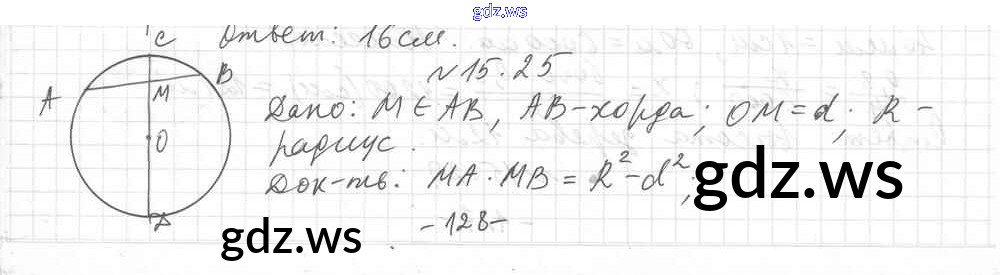 gdz.ws
Ответ: 16 см.
C
№15.25
B
A
M
Дано: M ∈ AB, AB-хорда; OM = d; R -
O
радиус.
Док-ть: MA · MB = R² - d²;
gdz.ws
D
-128-
gdz.ws